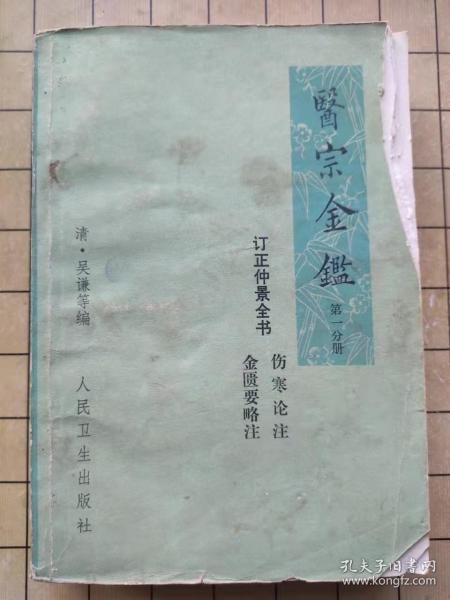 醫宗金鑑
第一分册
订正仲景全书
伤寒论注
金匮要略注
清·吴谦等编
人民卫生出版社
孔夫子旧书网
www.kongfz.com